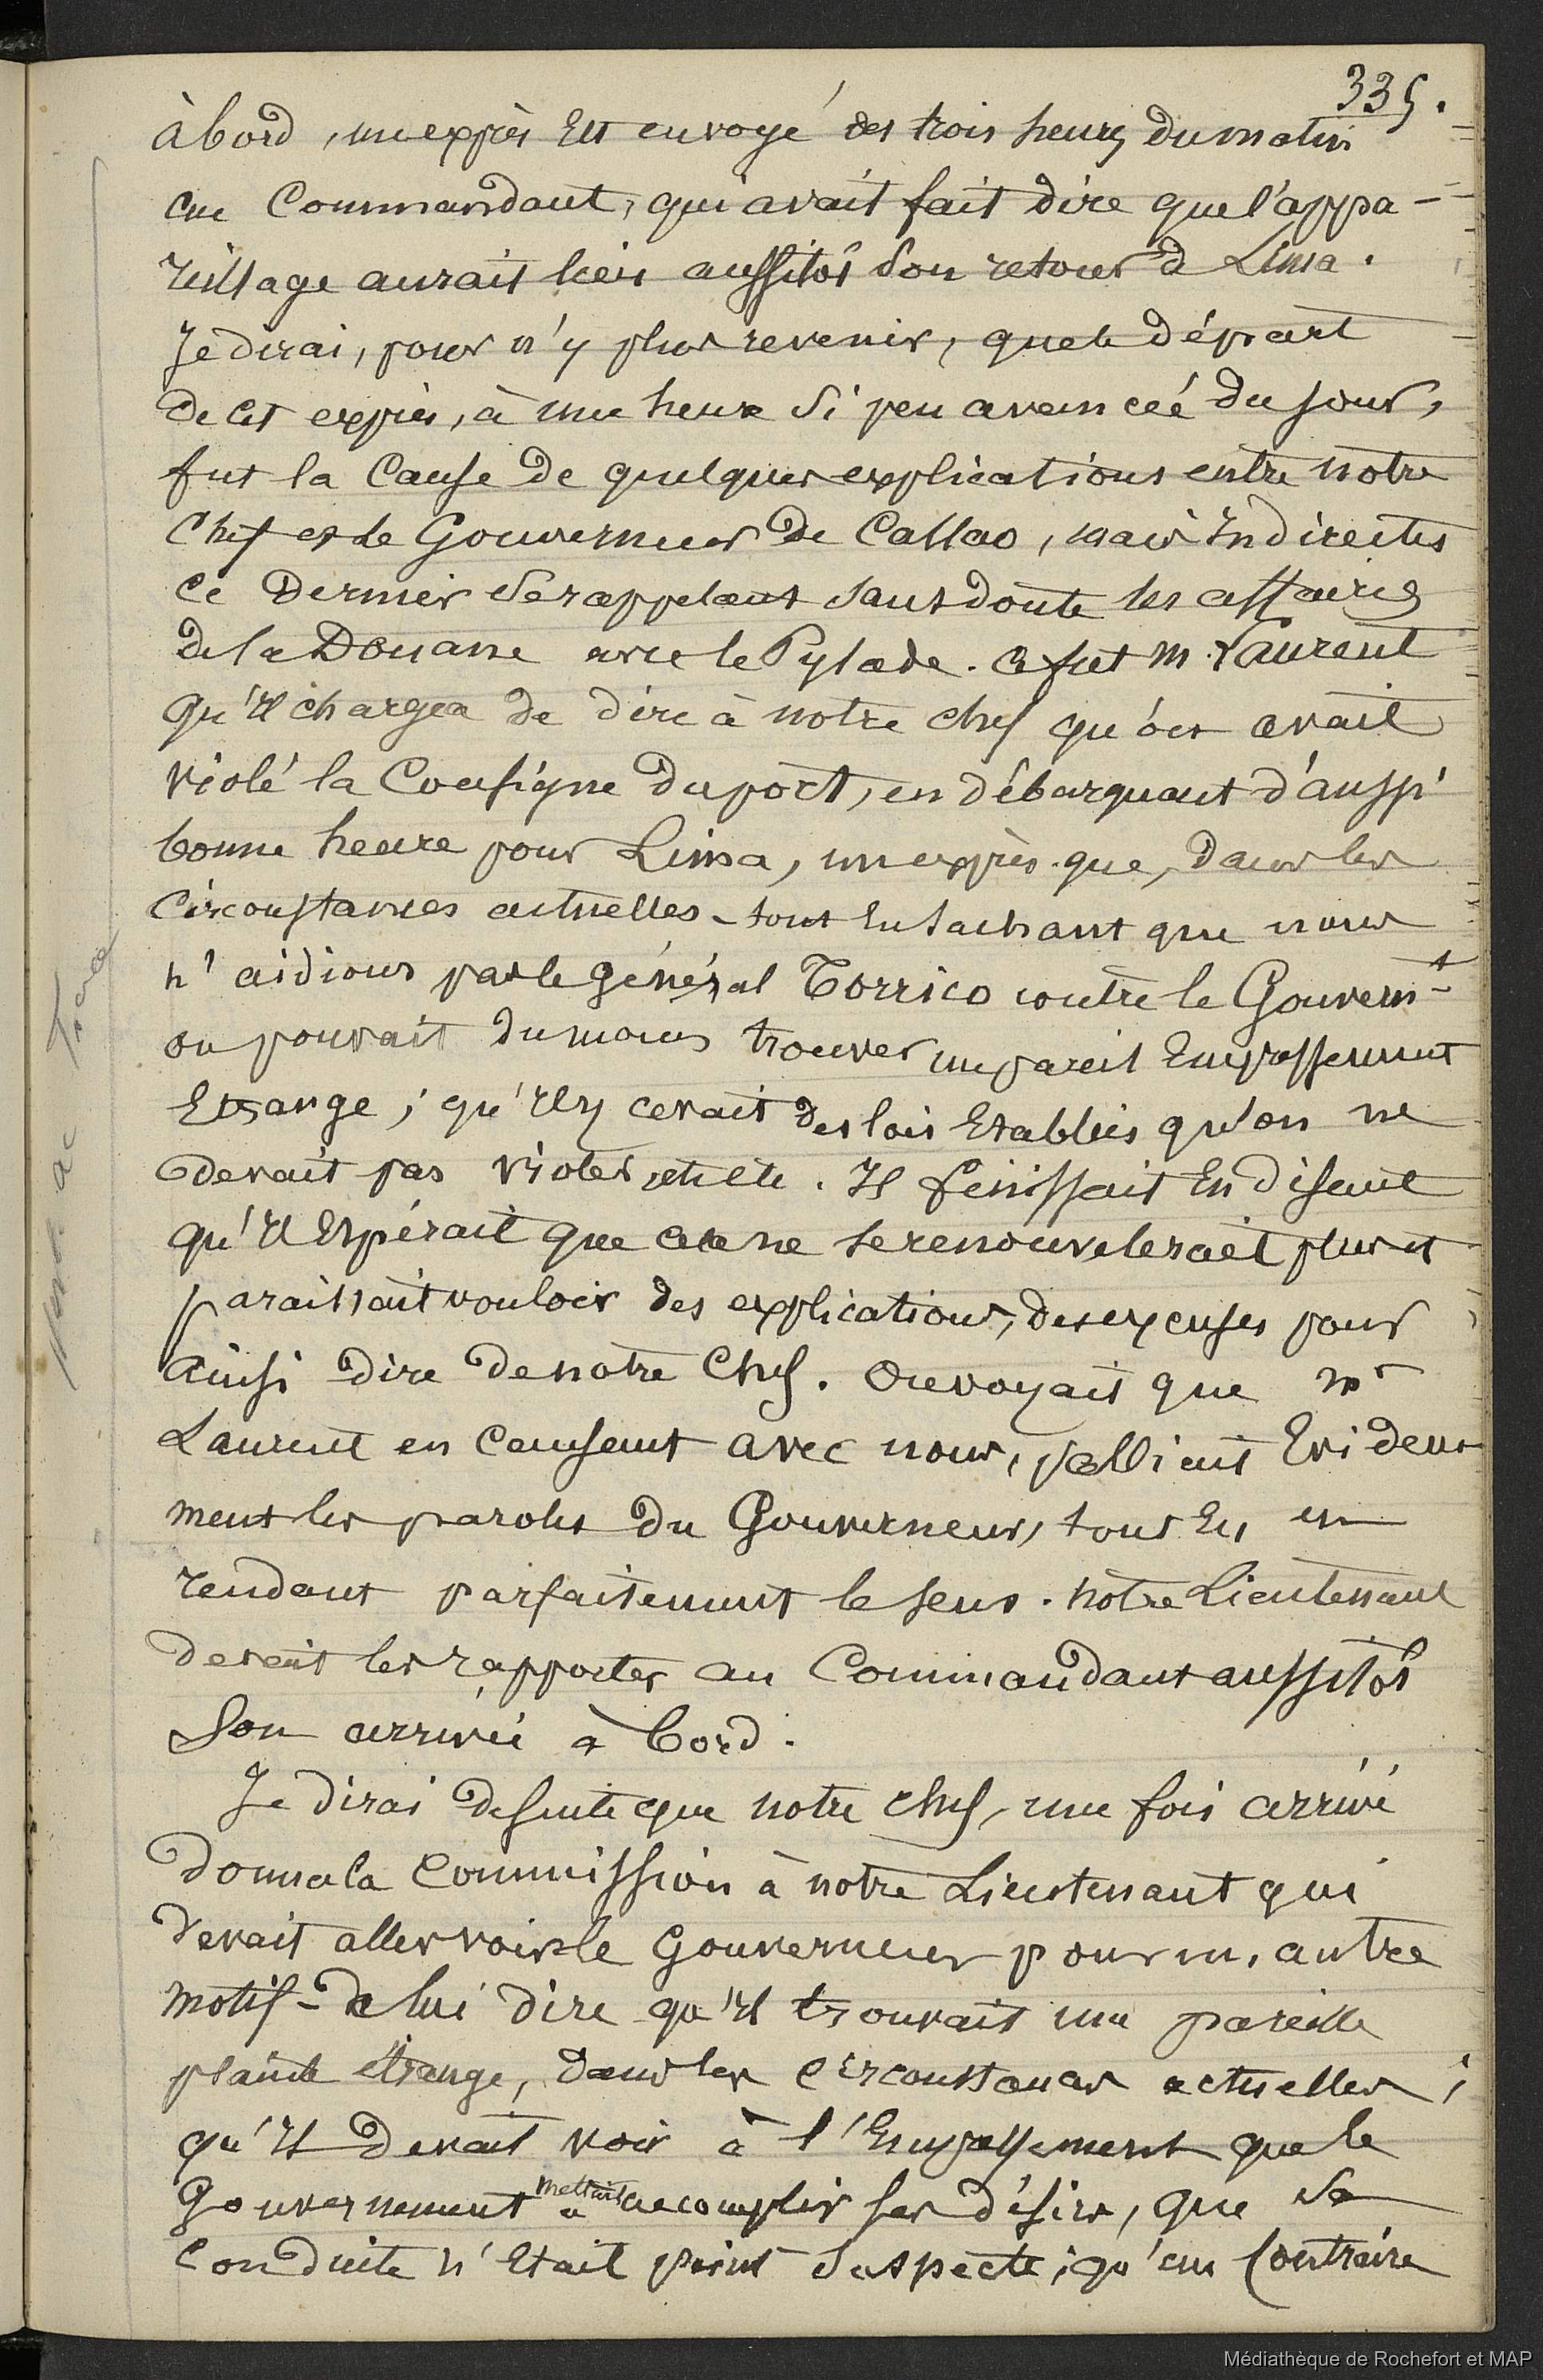 335.
à bord, un exprès Est envoyé des trois heures du matin
au Commandant, qui avait fait dire que l'appa-
reillage aurait lieu aussitôt son retour à Lima.
Je dirai, pour n'y plus revenir, que le départ
de cet exprès, à une heure si peu avancée du jour,
fut la Cause de quelques explications entre notre
Chef et le Gouverneur de Callao, mais Indirectes
Ce Dernier se rappelant sans doute les affaires
de la Douane avec le Pylade. Ce fut M. Laurent
qu'il chargea de dire à notre chef qu'on avait
violé la Consigne du port, en débarquant d'aussi
bonne heure pour Lima, un exprès que, dans les
Circonstances actuelles - tout En sachant que nous
n'aidions pas le général Torrico contre le Gouvernt
on pouvait du moins trouver un pareil Empressement
Etrange ; qu'Il y avait des lois Etablies qu'on ne
devait pas violer, etc etc. Il finissait En disant
qu'Il Espérait que cela ne se renouvelerait plus et
paraissait vouloir des explications, des excuses pour
ainsi dire de notre Chef. On voyait que Mr
Laurent en causant avec nous, palliait Evidem-
ment les paroles du Gouverneur, tout En en
rendant parfaitement le sens. Notre Lieutenant
devait les rapporter au Commandant aussitôt
Son arrivée à bord.
Je dirai de suite que notre chef, une fois arrivé
donna la Commission à notre Lieutenant qui
devait aller voir le Gouverneur pour un autre
motif - de lui dire qu'Il trouvait une pareille
plainte étrange, dans les circonstances actuelles ;
qu'Il devait voir à l'Empressement que le
Gouvernement mettait à accomplir ses désirs, que sa
Conduite n'Etait point suspecte ; qu'au Contraire
Médiathèque de Rochefort et MAP